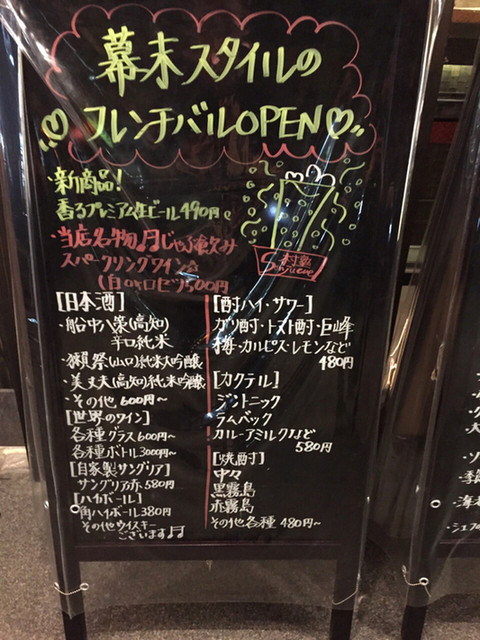 幕末スタイルの
フレンチバルOPEN♡
・新商品!
香るプレミアム生ビール490円
・当店名物♬じゃぶ飲み
スパークリングワイン☆
(白orロゼ)500円
[日本酒]
・船中八策(高知)
辛口純米
・獺祭(山口)純米大吟醸
・美丈夫(高知)純米吟醸
・その他 600円~
[世界のワイン]
各種グラス600円~
各種ボトル3000円~
[自家製サングリア]
サングリア赤 580円
[ハイボール]
角ハイボール380円
その他ウイスキー
ございます♬
[酎ハイ・サワー]
ガリ酎・トマト酎・巨峰
梅・カルピス・レモンなど
480円
[カクテル]
ジントニック
ラムバック
カルーアミルクなど
580円
[焼酎]
中々
黒霧島
赤霧島
その他各種 480円~